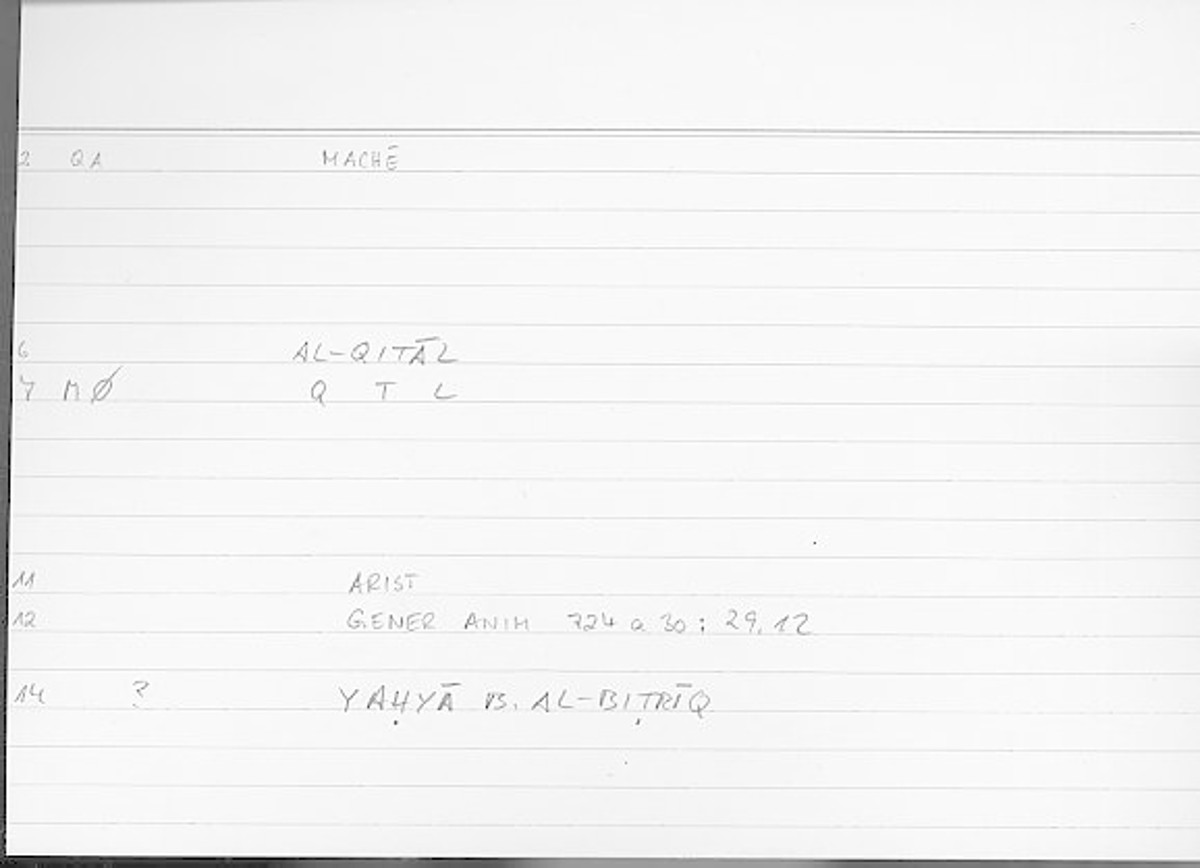 2 QA MACHĒ
6 AL-QITĀL
7 MØ Q T L
11 ARIST
12 GENER ANIM 724 a 30 : 29,12
14 ? YAḤYĀ B. AL-BIṬRĪQ